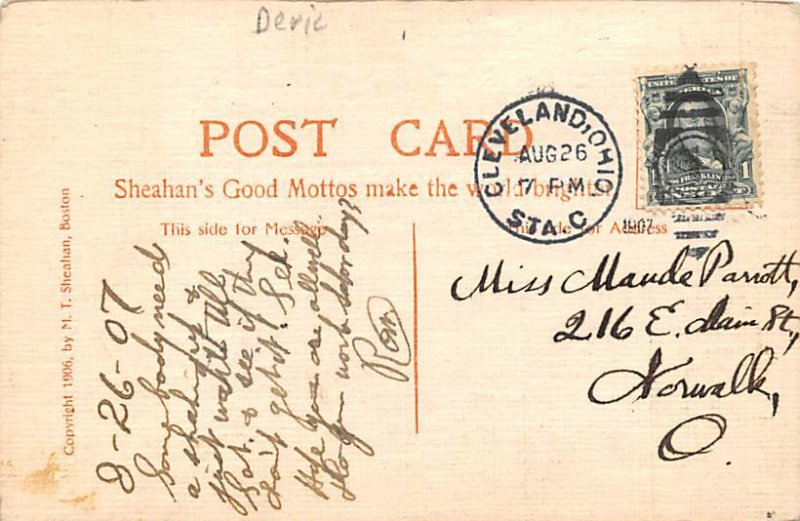 Deric
POST CARD
Sheahan's Good Mottos make the world brighter
This side for Message
This side for Address
CLEVELAND, OHIO
AUG 26
7 PM
STA. C
1907
UNITED STATES OF
AMERICA
FRANKLIN
1 1
Miss Maude Parrott,
216 E. Main St,
Norwalk,
O.
8-26-07
Somebody need
a shaking up &
just wait till
Sat. & see if they
don't get it.
Hope you are all well.
work
Ron
Copyright 1906, by M. T. Sheahan, Boston